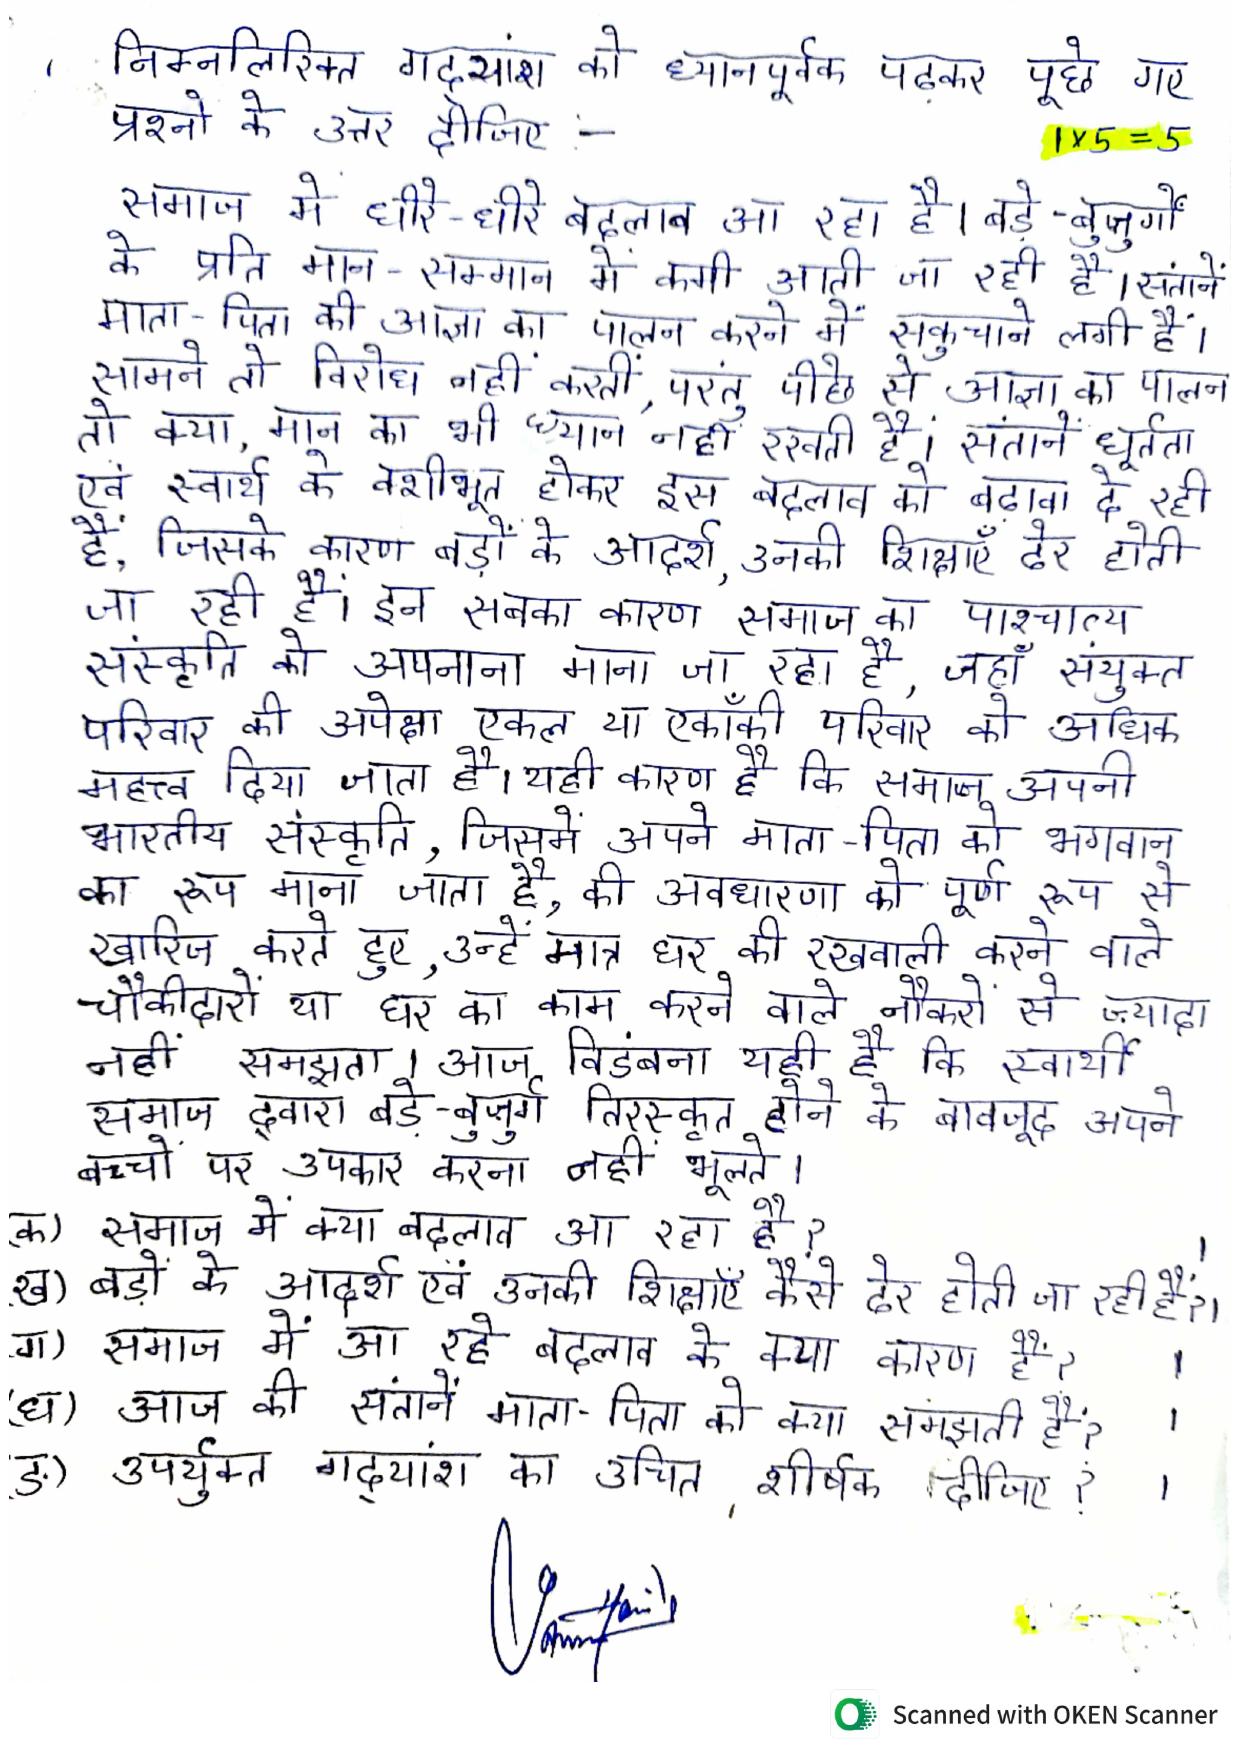 निम्नलिखित गद्यांश को ध्यानपूर्वक पढ़कर पूछे गए
प्रश्नों के उत्तर दीजिए :-
1x5=5
समाज में धीरे-धीरे बदलाब आ रहा है। बड़े-बुज़ुर्गों
के प्रति मान-सम्मान में कमी आती जा रही है। संतानें
माता-पिता की आज्ञा का पालन करने में सकुचाने लगी हैं।
सामने तो विरोध नहीं करतीं, परंतु पीछे से आज्ञा का पालन
तो क्या, मान का भी ध्यान नहीं रखती हैं। संतानें धूर्तता
एवं स्वार्थ के वशीभूत होकर इस बदलाव को बढ़ावा दे रही
हैं, जिसके कारण बड़ों के आदर्श, उनकी शिक्षाएँ ढेर होती
जा रही हैं। इन सबका कारण समाज का पाश्चात्य
संस्कृति को अपनाना माना जा रहा है, जहाँ संयुक्त
परिवार की अपेक्षा एकल या एकाँकी परिवार को अधिक
महत्त्व दिया जाता है। यही कारण है कि समाज अपनी
भारतीय संस्कृति, जिसमें अपने माता-पिता को भगवान
का रूप माना जाता है, की अवधारणा को पूर्ण रूप से
खारिज करते हुए, उन्हें मात्र घर की रखवाली करने वाले
चौकीदारों या घर का काम करने वाले नौकरों से ज़्यादा
नहीं समझता। आज विडंबना यही है कि स्वार्थी
समाज द्वारा बड़े-बुज़ुर्ग तिरस्कृत होने के बावजूद अपने
बच्चों पर उपकार करना नहीं भूलते।
(क) समाज में क्या बदलाव आ रहा है? 1
(ख) बड़ों के आदर्श एवं उनकी शिक्षाएँ कैसे ढेर होती जा रही हैं? 1
(ग) समाज में आ रहे बदलाव के क्या कारण हैं? 1
(घ) आज की संतानें माता-पिता को क्या समझती हैं? 1
(ङ) उपर्युक्त गद्यांश का उचित शीर्षक दीजिए? 1
Scanned with OKEN Scanner